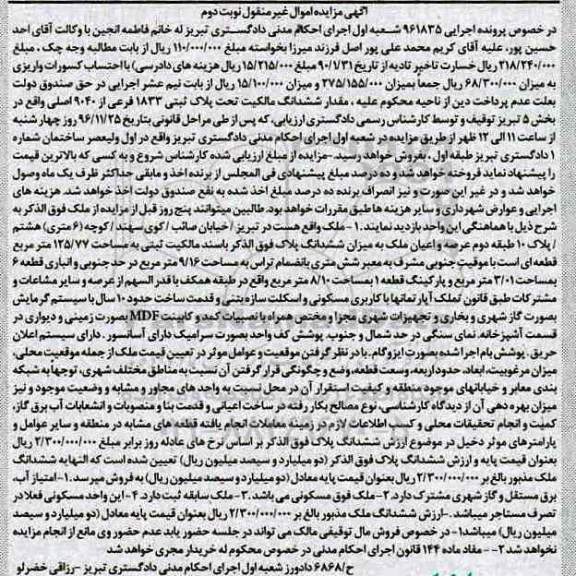 آگهی مزایده اموال غیر منقول نوبت دوم
در خصوص پرونده اجرایی ۹۶۱۸۳۵ شعبه اول اجرای احکام مدنی دادگستری تبریز له خانم فاطمه انجین با وکالت آقای احد
حسین پور، علیه آقای کریم محمد علی پور اصل فرزند میرزا بخواسته مبلغ ۱۱۰/۰۰۰/۰۰۰ ریال از بابت مطالبه وجه چک ، مبلغ
۲۱۸/۲۴۰/۰۰۰ ریال خسارت تاخیر تادیه از تاریخ ۹۰/۱/۳۱ مبلغ ۱۵/۲۱۵/۰۰۰ ریال هزینه های دادرسی) با احتساب کسورات واریزی
به میزان ۶۸/۳۰۰/۰۰۰ ریال جمعا بمیزان ۲۷۵/۱۵۵/۰۰۰ و ۱۵/۱۰۰/۰۰۰ ریال از بابت نیم عشر اجرایی در حق صندوق دولت
بعلت عدم پرداخت دین از ناحیه محکوم علیه ، مقدار ششدانگ مالکیت تحت پلاک ثبتی ۱۸۳۳ فرعی از ۹۰۴۰ اصلی واقع در
بخش ۵ تبریز توقیف و توسط کارشناس رسمی دادگستری ارزیابی، که پس از طی مراحل قانونی بتاریخ ۹۶/۱۱/۲۵ روز چهار شنبه
از ساعت ۱۱ الی ۱۲ ظهر از طریق مزایده در شعبه اول اجرای احکام مدنی دادگستری تبریز واقع در اول ولیعصر ساختمان شماره
۱ دادگستری تبریز طبقه اول ، بفروش خواهد رسید.-مزایده از مبلغ ارزیابی شده کارشناس شروع و به کسی که بالاترین قیمت
را پیشنهاد نماید فروخته خواهد شد و ده درصد مبلغ پیشنهادی فی المجلس از برنده اخذ و مابقی حداکثر ظرف یک ماه وصول
خواهد شد و در غیر این صورت و نیز انصراف برنده ده درصد مبلغ اخذ شده به نفع صندوق دولت اخذ خواهد شد. هزینه های
اجرایی و عوارض شهرداری و سایر هزینه ها طبق مقررات خواهد بود. طالبین میتوانند پنج روز قبل از مزایده از ملک فوق الذکر به
شرح ذیل با هماهنگی این واحد بازدید نمایند. ۱- ملک واقع هست در تبریز / خیابان صائب / کوی سهند / کوچه (۶ متری) هشتم
/ پلاک ۱۰ طبقه دوم عرصه و اعیان ملک به میزان ششدانگ پلاک فوق الذکر باسند مالکیت ثبتی به مساحت ۱۲۵/۷۷ متر مربع
قطعه ای است با موقعیت جنوبی مشرف به معبر شش متری بانضمام تراس به مساحت ۹/۱۶ متر مربع در حد جنوبی و انباری قطعه ۶
بمساحت ۳/۰۱ متر مربع و پارکینگ قطعه ۱ بمساحت ۸/۱۰ متر مربع واقع در طبقه همکف با قدر السهم از عرصه و سایر مشاعات و
مشترکات طبق قانون تملک آپارتمانها با کاربری مسکونی و اسکلت سازه بتنی و قدمت ساخت حدود ۱۰ سال با سیستم گرمایش
بصورت گاز شهری و بخاری و تجهیزات شهری مجزا و مختص همراه با نصبیات کمد و کابینت MDF بصورت زمینی و دیواری در
قسمت آشپزخانه، نمای سنگی در حد شمال و جنوب، پوشش کف واحد بصورت سرامیک دارای آسانسور . دارای سیستم اعلان
حریق . پوشش بام اجرا شده بصورت ایزوگام. با در نظر گرفتن موقعیت و عوامل موثر در تعیین قیمت ملک از جمله موقعیت محلی،
میزان مرغوبیت، ابعاد، حدود اربعه، وسعت قطعه، وضع و چگونگی قرار گرفتن آن نسبت به مناطق مختلف شهری، توجها به شبکه
بندی معابر و خیابانهای موجود منطقه و کیفیت استقرار آن در محل نسبت به واحد های مجاور و مشابه و وضعیت موجود و نیز
میزان بهره دهی آن از دیدگاه کارشناسی، نوع مصالح بکار رفته در ساخت اعیانی و قدمت بنا و منصوبات و انشعابات آب برق گاز،
کمیت و انجام تحقیقات محلی و کسب اطلاعات لازم در زمینه معاملات انجام یافته قطعه های مشابه در منطقه و سایر عوامل و
پارامترهای موثر دخیل در موضوع ارزش ششدانگ پلاک فوق الذکر بر اساس نرخ های عادله روز برابر مبلغ ۲/۳۰۰/۰۰۰/۰۰۰ ریال
بعنوان قیمت پایه و ارزش ششدانگ پلاک فوق الذکر (دو میلیارد و سیصد میلیون ریال) تعیین شده است که النهایه ششدانگ
ملک مذبور بالغ بر ۲/۳۰۰/۰۰۰/۰۰۰ ریال بعنوان قیمت پایه معادل (دو میلیارد و سیصد میلیون ریال) به فروش میرسد. ۱- امتیاز آب،
برق مستقل و گاز شهری مشترک دارد. ۲- ملک فوق مسکونی می باشد. ۳- ملک سابقه ثبت دارد. ۴- این واحد مسکونی فعلا در
تصرف مستاجر میباشد. -ارزش ششدانگ ملک مذبور بالغ بر ۲/۳۰۰/۰۰۰/۰۰۰ ریال بعنوان قیمت پایه معادل (دو میلیارد و سیصد
میلیون ریال) میباشد ۱- در خصوص فروش مال توقیفی مالک می تواند در جلسه حضور یابد عدم حضور وی مانع از انجام مزایده
نخواهد شد ۲ - - مفاد ماده ۱۴۴ قانون اجرای احکام مدنی در خصوص محکوم له خریدار مجری خواهد شد
ح/۶۸۶۸ دادورز شعبه اول اجرای احکام مدنی دادگستری تبریز -رزاقی خضرلو